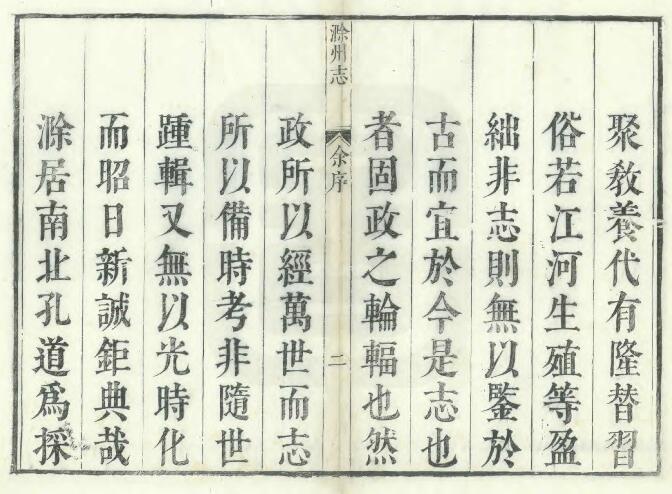 聚敎養代有隆替習
俗若江河生殖等盈
絀非志則無以鍳於
古而宜於今是志也
者固政之輪輻也然
滁州志
余序
二
政所以經萬世而志
所以備時考非隨世
踵輯又無以光時化
而昭日新誠鉅典哉
滁居南北孔道爲採